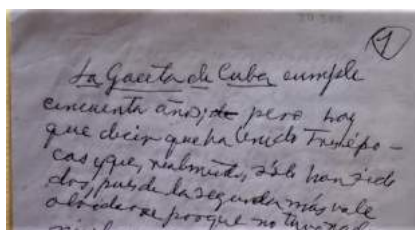 1
La Gaceta de Cuba cumple
cincuenta años; pero hay
que decir que ha tenido tres épo-
cas y que, realmente, sólo han sido
dos, pues de la segunda más vale
olvidarse porque no tuvo